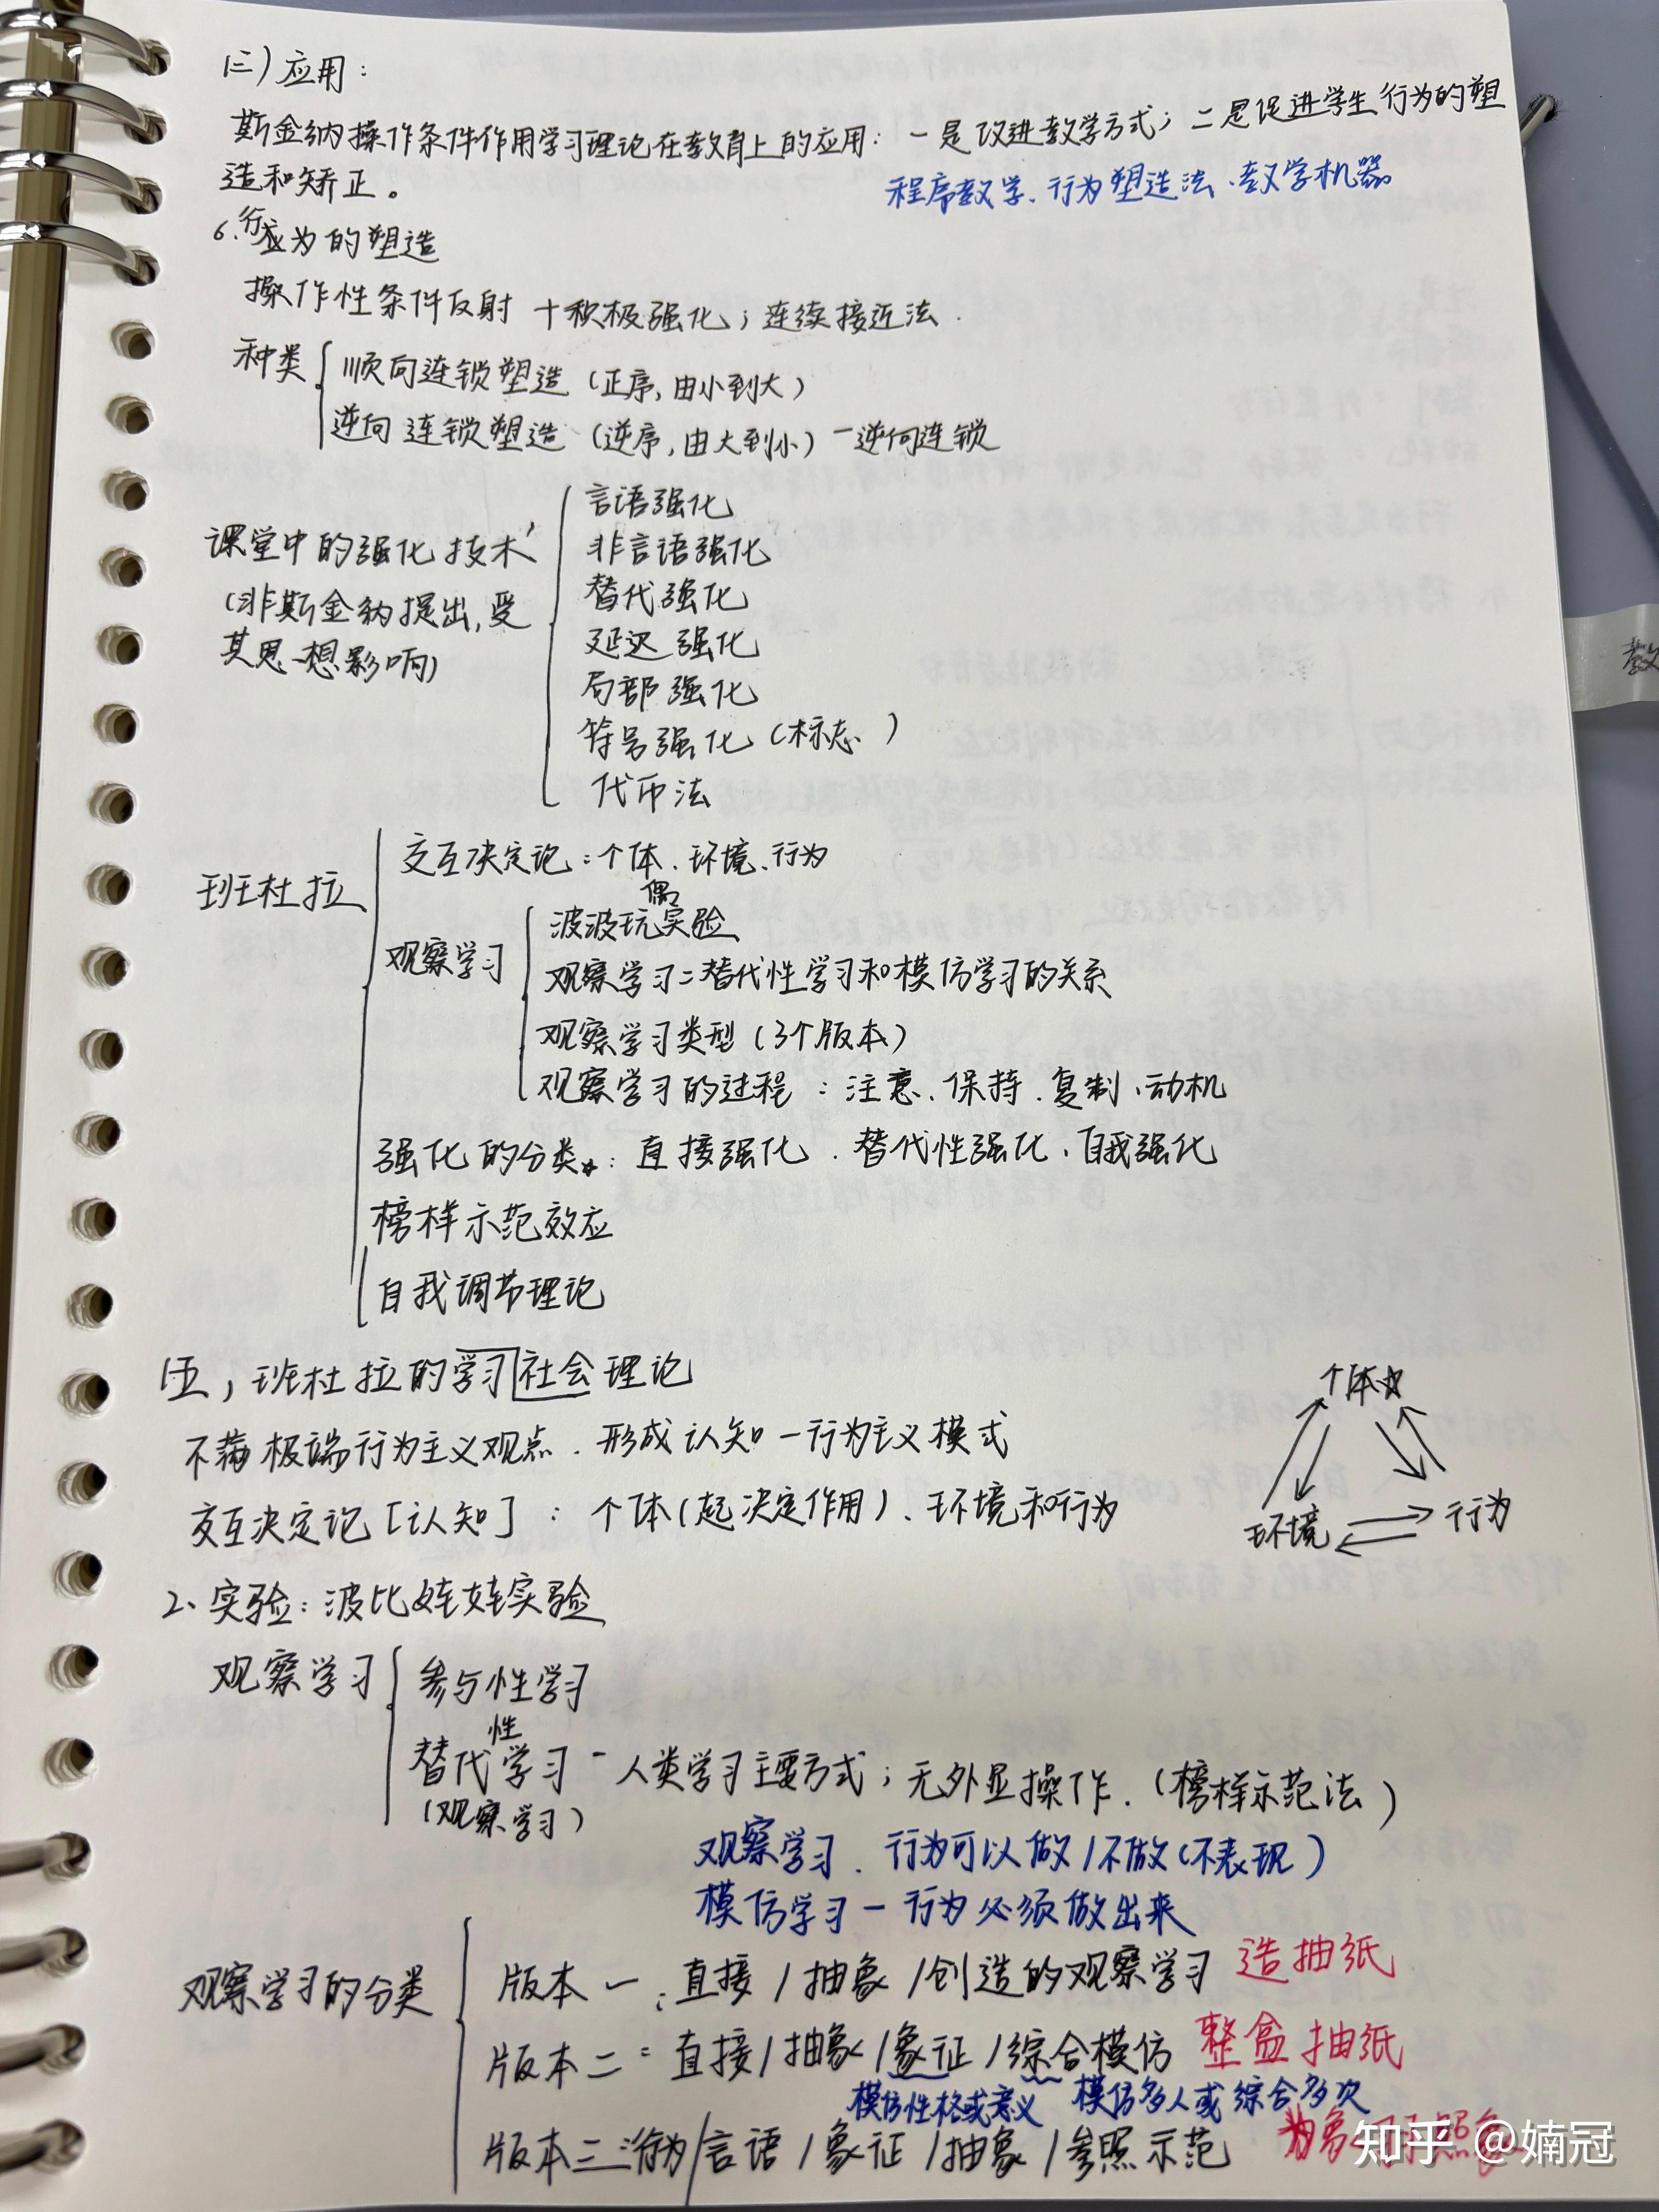 (三)应用：
斯金纳操作条件作用学习理论在教育上的应用：一是改进教学方式；二是促进学生行为的塑
造和矫正。
程序教学、行为塑造法、教学机器
6、行为的塑造
操作性条件反射 +积极强化；连续接近法.
种类
顺向连锁塑造（正序，由小到大）
逆向连锁塑造（逆序，由大到小）－逆向连锁
课堂中的强化技术
（非斯金纳提出，受
其思想影响）
言语强化
非言语强化
替代强化
延迟强化
局部强化
符号强化（标志）
代币法
班杜拉
交互决定论：个体、环境、行为
观察学习
波波玩偶实验
观察学习=替代性学习和模仿学习的关系
观察学习类型（3个版本）
观察学习的过程：注意、保持、复制、动机
强化的分类☆：直接强化、替代性强化、自我强化
榜样示范效应
自我调节理论
(五)班杜拉的学习社会理论
不满极端行为主义观点．形成认知－行为主义模式
交互决定论[认知]：个体（起决定作用）、环境和行为
个体☆
环境
行为
2、实验：波比娃娃实验
观察学习
参与性学习
替代性学习－人类学习主要方式；无外显操作．（榜样示范法）
（观察学习）
观察学习．行为可以做/不做（不表现）
模仿学习－行为必须做出来
观察学习的分类
版本一：直接/抽象/创造的观察学习 造抽纸
版本二：直接/抽象/象征/综合模仿 整盒抽纸
模仿性格或意义 模仿多人或综合多次
版本三：行为/言语/象征/抽象/参照示范
知乎 @婻冠
教